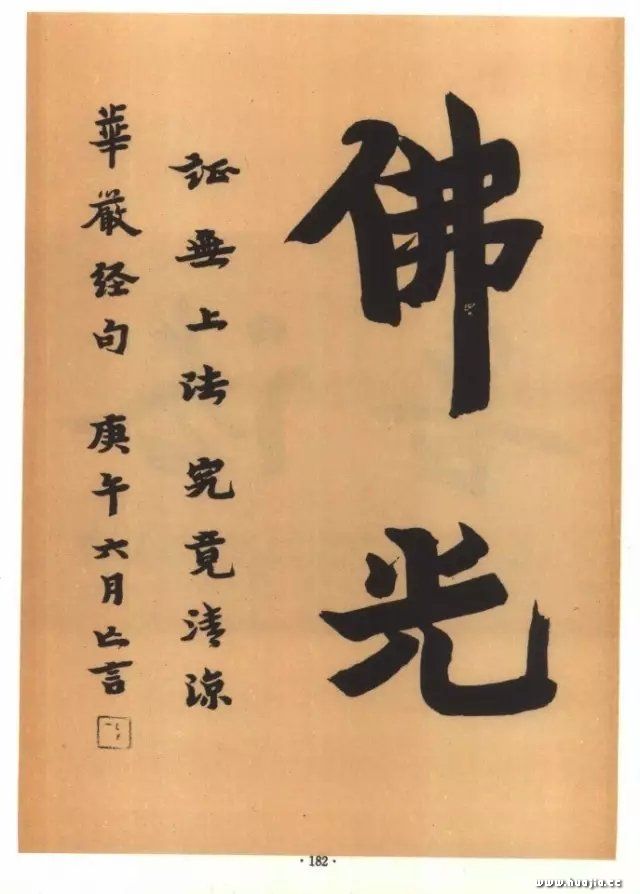 佛光
証無上法 究竟清涼
華嚴经句 庚午六月亡言
·182·
www.huajia.cc